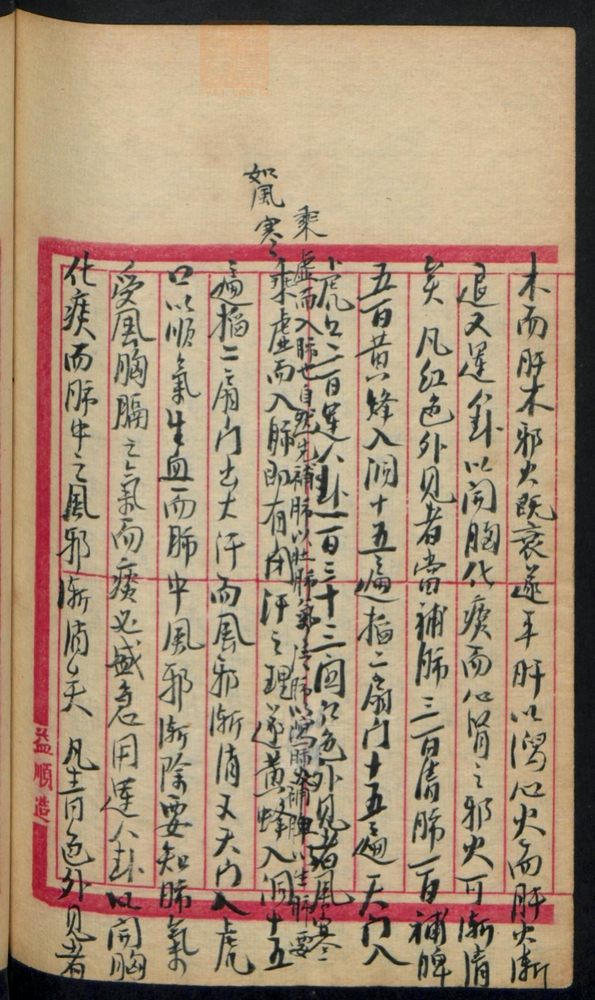 木而肝木邪火既衰遂平肝以瀉心火而肝火漸
退又運八卦以開胸化痰而心胃之邪火可漸清
矣 凡紅色外見者當補肺三百清肺一百補脾
五百黃蜂入洞十五遍搯二扇門十五遍天門入
虎口二百運八卦一百二十三間紅色外見者風寒
乘
虛而入肺也自然先補肺以壯肺氣清肺以瀉肺火補脾以生肺要
如風寒
乘虛而入肺即有閉汗之理遂黃蜂入洞十五
遍搯二扇門出大汗而風邪漸消又天門入虎
口以順氣生血而肺中風邪漸除要知肺氣
受風胸膈之氣而痰必盛急用運八卦以開胸
化痰而肺中之風邪漸消矣 凡青色外見者
益順造